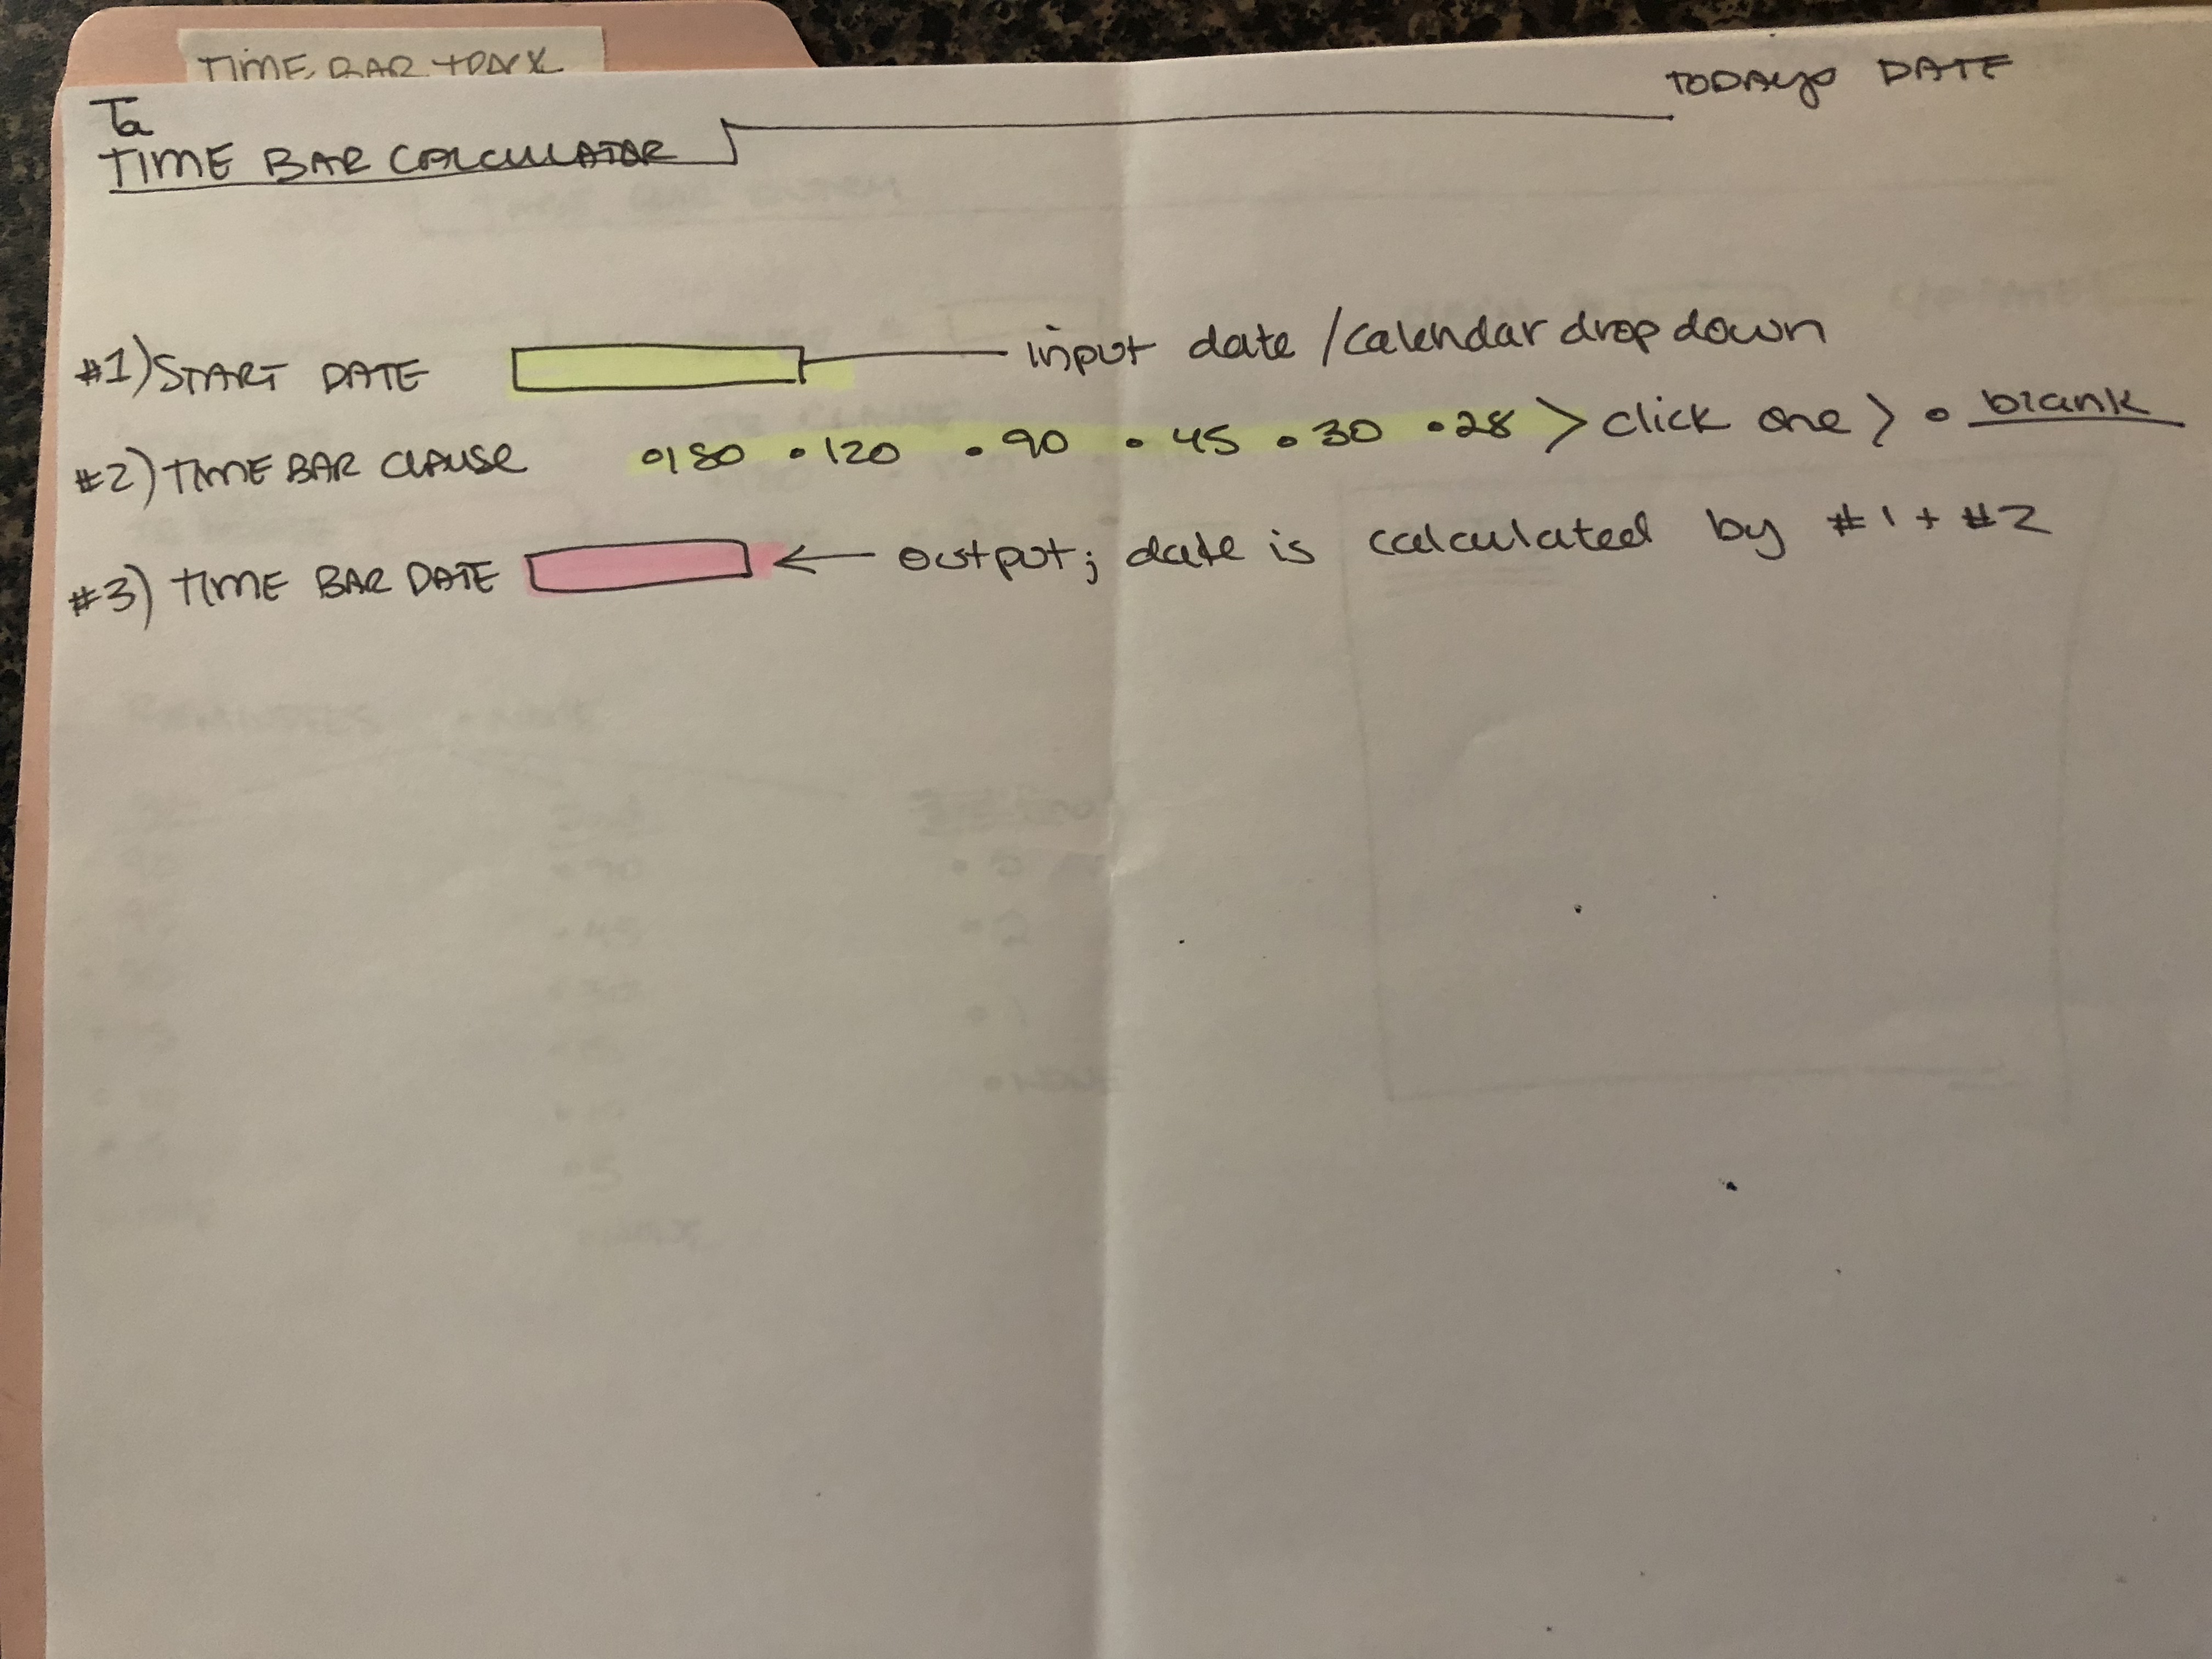 TIME BAR TRACK
Ta
TODAYS DATE
TIME BAR CALCULATOR
#1) START DATE input date / calendar drop down
#2) TIME BAR CLAUSE • 180 • 120 • 90 • 45 • 30 • 28 > click one > • blank
#3) TIME BAR DATE ← output; date is calculated by #1 + #2